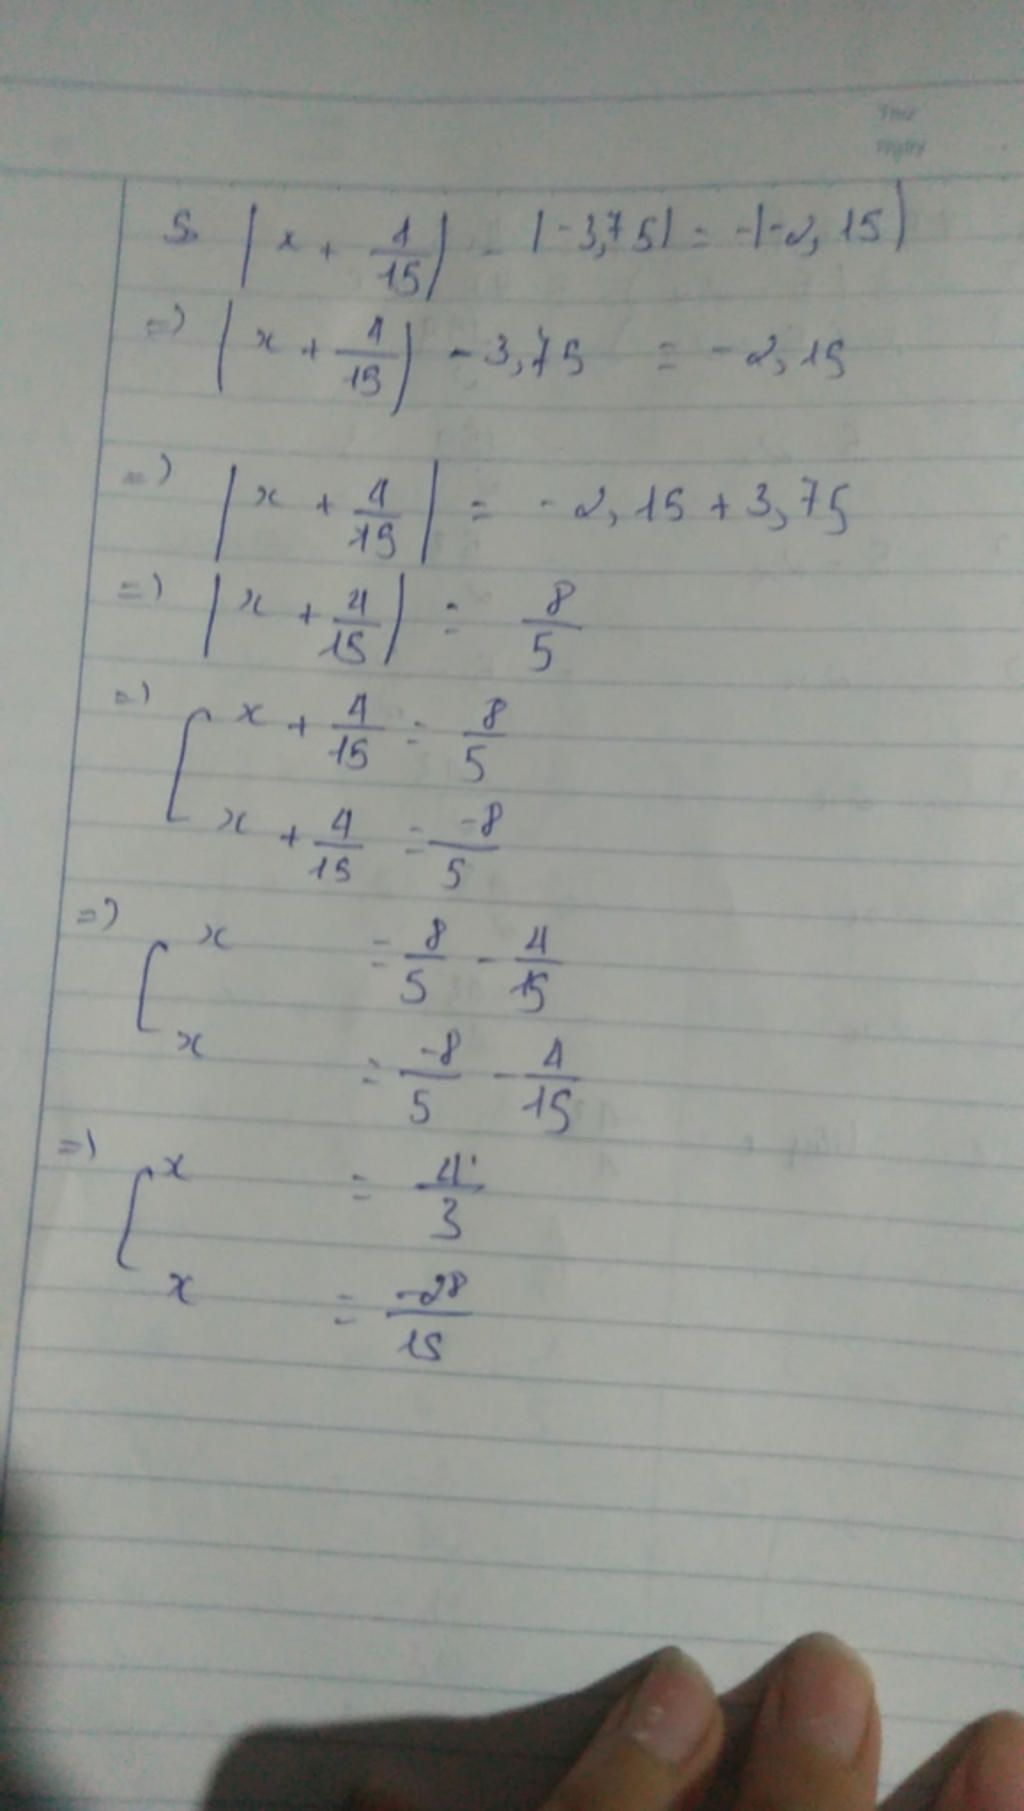 5. |x + 4/15| - |-3,75| = -|-2,15|
=) |x + 4/15| - 3,75 = -2,15
=) |x + 4/15| = -2,15 + 3,75
=) |x + 4/15| = 8/5
=) [ x + 4/15 = 8/5
x + 4/15 = -8/5
=) [ x = 8/5 - 4/15
x = -8/5 - 4/15
=) [ x = 4/3
x = -28/15